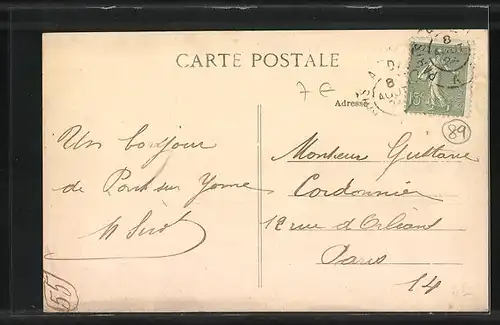 CARTE POSTALE
7 €
Adresse
15c
89
Un bonjour
de Pont sur Yonne
Monsieur Gustave
Cordonnier
12 rue d'Orléans
Paris
14
55